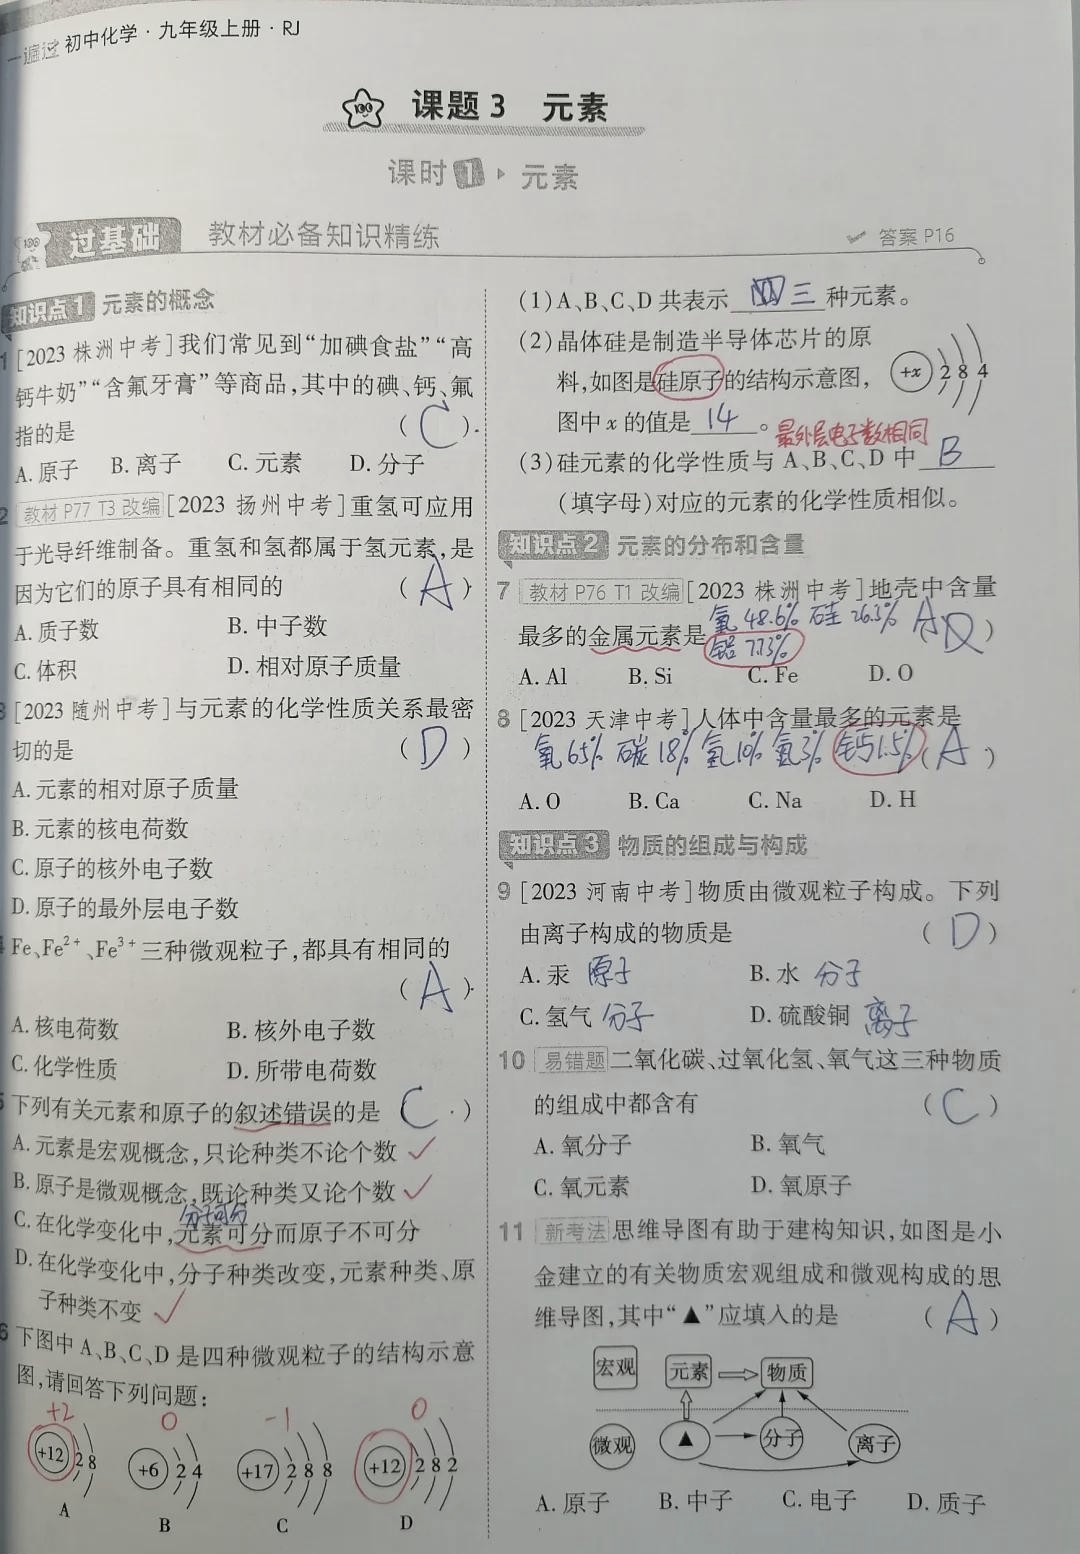 一遍过 初中化学·九年级上册·RJ
课题3 元素
课时1 元素
过基础 教材必备知识精练 答案 P16
知识点1 元素的概念
1 [2023 株洲中考]我们常见到“加碘食盐”“高
钙牛奶”“含氟牙膏”等商品,其中的碘、钙、氟
指的是 ( C ).
A.原子 B.离子 C.元素 D.分子
2 教材 P77 T3 改编 [2023 扬州中考]重氢可应用
于光导纤维制备。重氢和氢都属于氢元素,是
因为它们的原子具有相同的 ( A )
A.质子数 B.中子数
C.体积 D.相对原子质量
3 [2023 随州中考]与元素的化学性质关系最密
切的是 ( D )
A.元素的相对原子质量
B.元素的核电荷数
C.原子的核外电子数
D.原子的最外层电子数
4 Fe、Fe²⁺、Fe³⁺三种微观粒子,都具有相同的
( A )
A.核电荷数 B.核外电子数
C.化学性质 D.所带电荷数
5 下列有关元素和原子的叙述错误的是 C )
A.元素是宏观概念,只论种类不论个数 ✓
B.原子是微观概念,既论种类又论个数 ✓
分子可分
C.在化学变化中,元素可分而原子不可分
D.在化学变化中,分子种类改变,元素种类、原
子种类不变 ✓
6 下图中 A、B、C、D 是四种微观粒子的结构示意
图,请回答下列问题:
+2 0 -1 0
+12 2 8 +6 2 4 +17 2 8 8 +12 2 8 2
A B C D
(1)A、B、C、D 共表示 三 种元素。
(2)晶体硅是制造半导体芯片的原
料,如图是硅原子的结构示意图,
+x 2 8 4
图中 x 的值是 14 。
最外层电子数相同
(3)硅元素的化学性质与 A、B、C、D 中 B
(填字母)对应的元素的化学性质相似。
知识点2 元素的分布和含量
7 教材 P76 T1 改编 [2023 株洲中考]地壳中含量
氧 48.6% 硅 26.3% A
最多的金属元素是 )
铝 7.73%
A. Al B. Si C. Fe D. O
8 [2023 天津中考]人体中含量最多的元素是
氧 65% 碳 18% 氢 10% 氮 3% 钙 1.5% ( A )
A. O B. Ca C. Na D. H
知识点3 物质的组成与构成
9 [2023 河南中考]物质由微观粒子构成。下列
由离子构成的物质是 ( D )
A.汞 原子 B.水 分子
C.氢气 分子 D.硫酸铜 离子
10 易错题 二氧化碳、过氧化氢、氧气这三种物质
的组成中都含有 ( C )
A.氧分子 B.氧气
C.氧元素 D.氧原子
11 新考法 思维导图有助于建构知识,如图是小
金建立的有关物质宏观组成和微观构成的思
维导图,其中“▲”应填入的是 ( A )
宏观 元素 物质
微观 ▲ 分子 离子
A.原子 B.中子 C.电子 D.质子